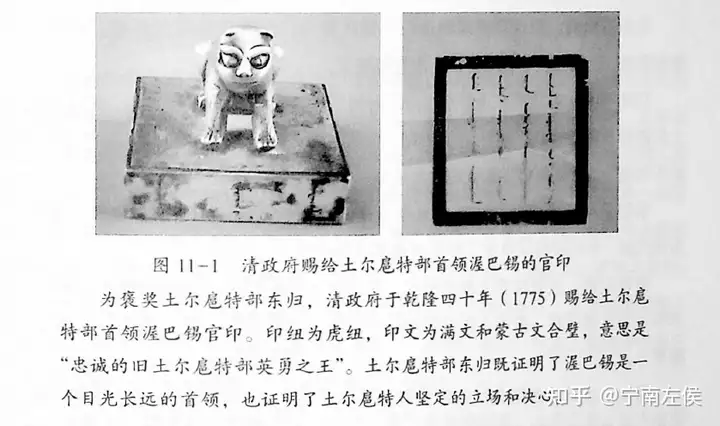 图 11-1 清政府赐给土尔扈特部首领渥巴锡的官印
为褒奖土尔扈特部东归，清政府于乾隆四十年（1775）赐给土尔扈
特部首领渥巴锡官印。印纽为虎纽，印文为满文和蒙古文合璧，意思是
“忠诚的旧土尔扈特部英勇之王”。土尔扈特部东归既证明了渥巴锡是一
个目光长远的首领，也证明了土尔扈特人坚定的立场和决心
知乎 @宁南左侯